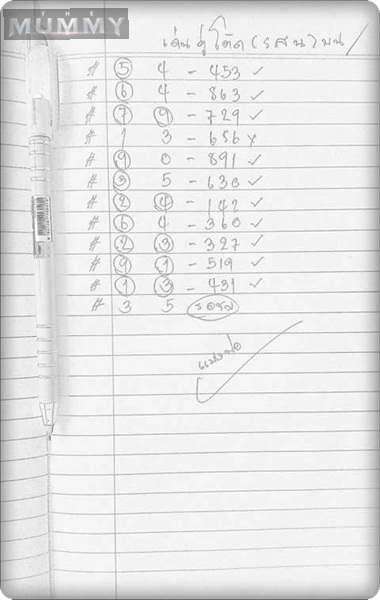 THE
MUMMY
เด่น คู่ โต๊ด (ร ส น) บน
# 5 4 - 453 ✓
# 6 4 - 863 ✓
# 7 9 - 729 ✓
# 1 3 - 656 x
# 9 0 - 891 ✓
# 3 5 - 630 ✓
# 2 4 - 142 ✓
# 6 4 - 360 ✓
# 2 3 - 327 ✓
# 9 1 - 519 ✓
# 1 3 - 431 ✓
# 3 5